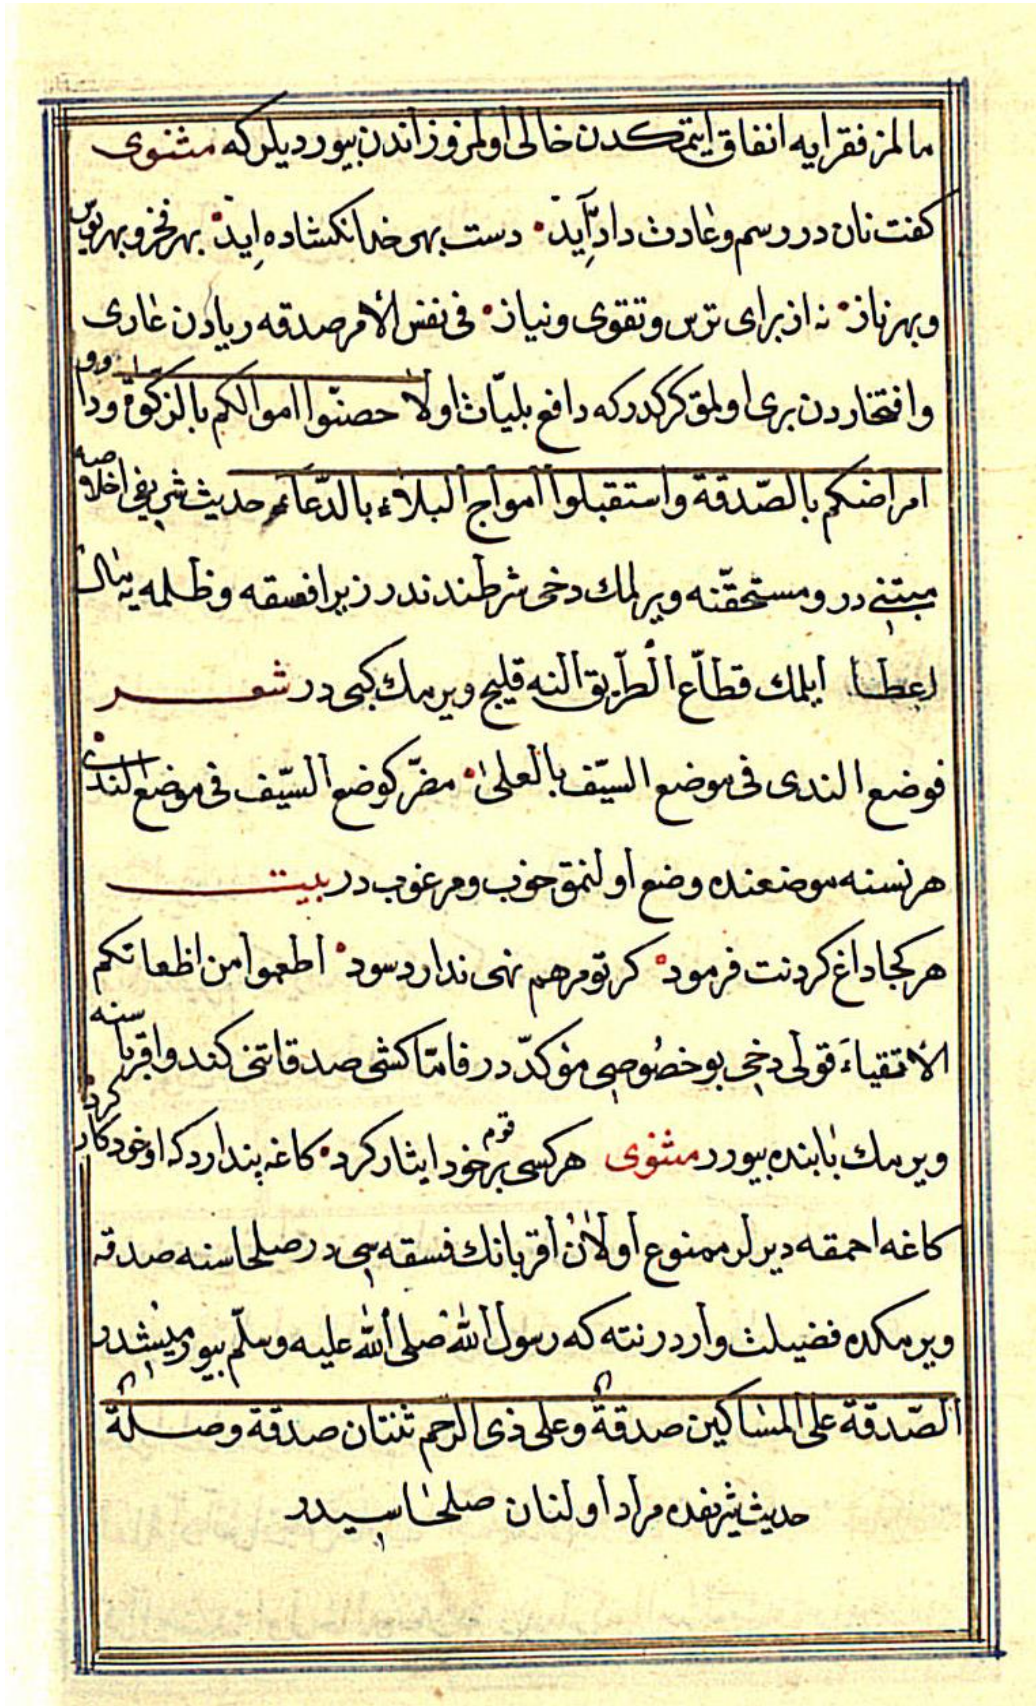 مالمز فقرایه انفاق ایتمكدن خالی اولمز وزاندن بیوردیلركه مثنوی
كفت نان در رسم وعادت داد آید دست بهر خدا نكشاده اید بهر فخر وبهر بوش
وبهر ناز نه از برای ترس وتقوی ونیاز فی نفس الأمر صدقه ریادن عاری
وافتخاردن بری اولمق كركدركه دافع بلیّات اولا حصنّوا اموالكم بالزكوة وداووا
امراضكم بالصّدقة واستقبلوا امواج البلاء بالدّعاء حدیث شریفی اخلاصه
مبتنی در ومستحقّنه ویرلمك دخی شرطندندر زیرا فسقه وظلمه یه مال
اعطا ایلمك قطّاع الطّریق النه قلیج ویرمك كبی در شعر
فوضع الندی فی موضع السّیف بالعلی مضرّ كوضع السّیف فی موضع الندی
هر نسنه موضعنده وضع اولنمق خوب ومرغوب در بیت
هر كجا داغ كردنت فرمود كر تو مرهم نهی ندارد سود اطعموا من اظعاتكم
الأتقیاء قولی دخی بو خصوصی مؤكدّ در فامّا كشی صدقاتنی كندو اقرباسنه
ویرمك بابنده بیورر مثنوی هر كسی بر قوم خود ایثار كرد كاغه پنداردكه او خود كار كرد
كاغه احمقه دیرلر ممنوع اولان اقربانك فسقه سی در صلحاسنه صدقه
ویرمكده فضیلت واردر نته كه رسول الله صلی الله علیه وسلّم بیورمیشدر
الصّدقة علی المساكین صدقة وعلی ذی الرحم ثنتان صدقة وصلة
حدیث شریفده مراد اولنان صلحاسیدر